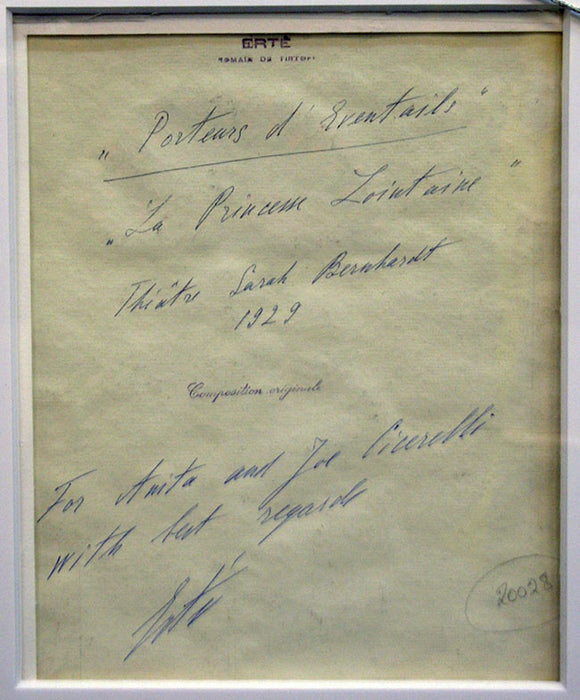 ERTÉ
ROMAIN DE TIRTOFF
„ Porteurs d' Eventails "
„ La Princesse Lointaine "
Théâtre Sarah Bernhardt
1929
Composition originale
For Anita and Joe Cicerelli
with best regards
Erté
20028